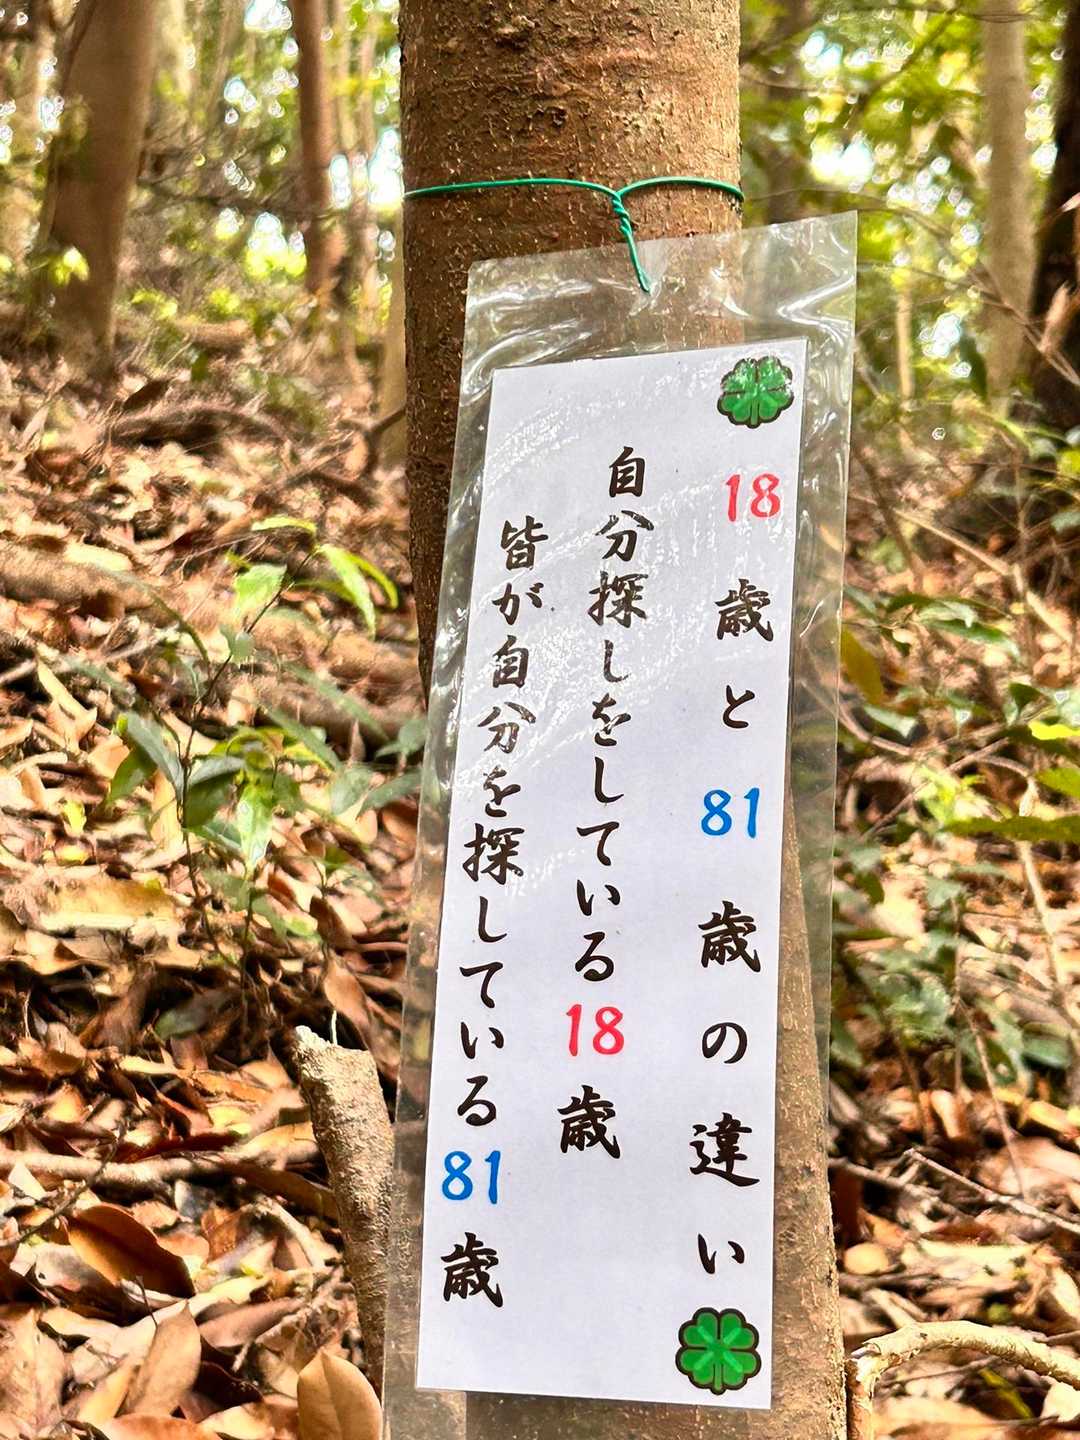 18歳と81歳の違い
自分探しをしている18歳
皆が自分を探している81歳